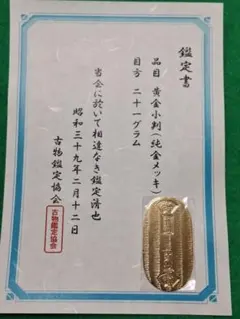 鑑定書
品目 黄金小判(純金メッキ)
目方 二十一グラム
当会に於いて相違なき鑑定済也
昭和三十九年二月十二日
古物鑑定協会
古物鑑定協会